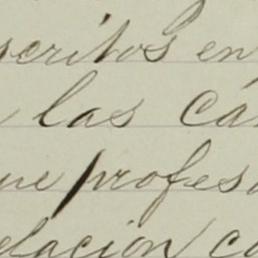 scritos en
las cá
ue profes
elación co